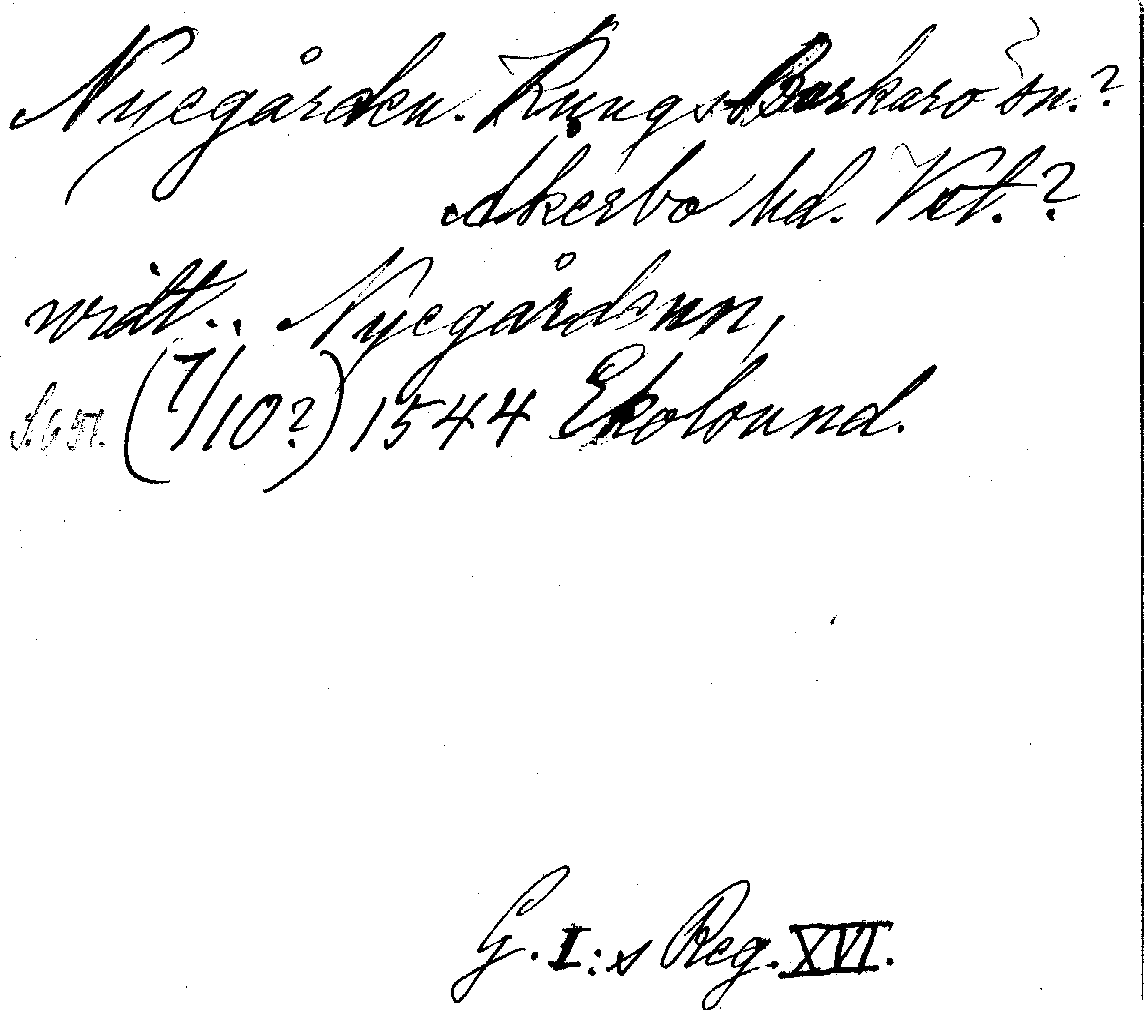 Nyegården. Kungs-Barkarö sn.?
Åkerbo hd. Vstm.?
widt.. Nyegårdenn,
(7/10?) 1544 Ekolound.
G. I:s Reg. XVI.